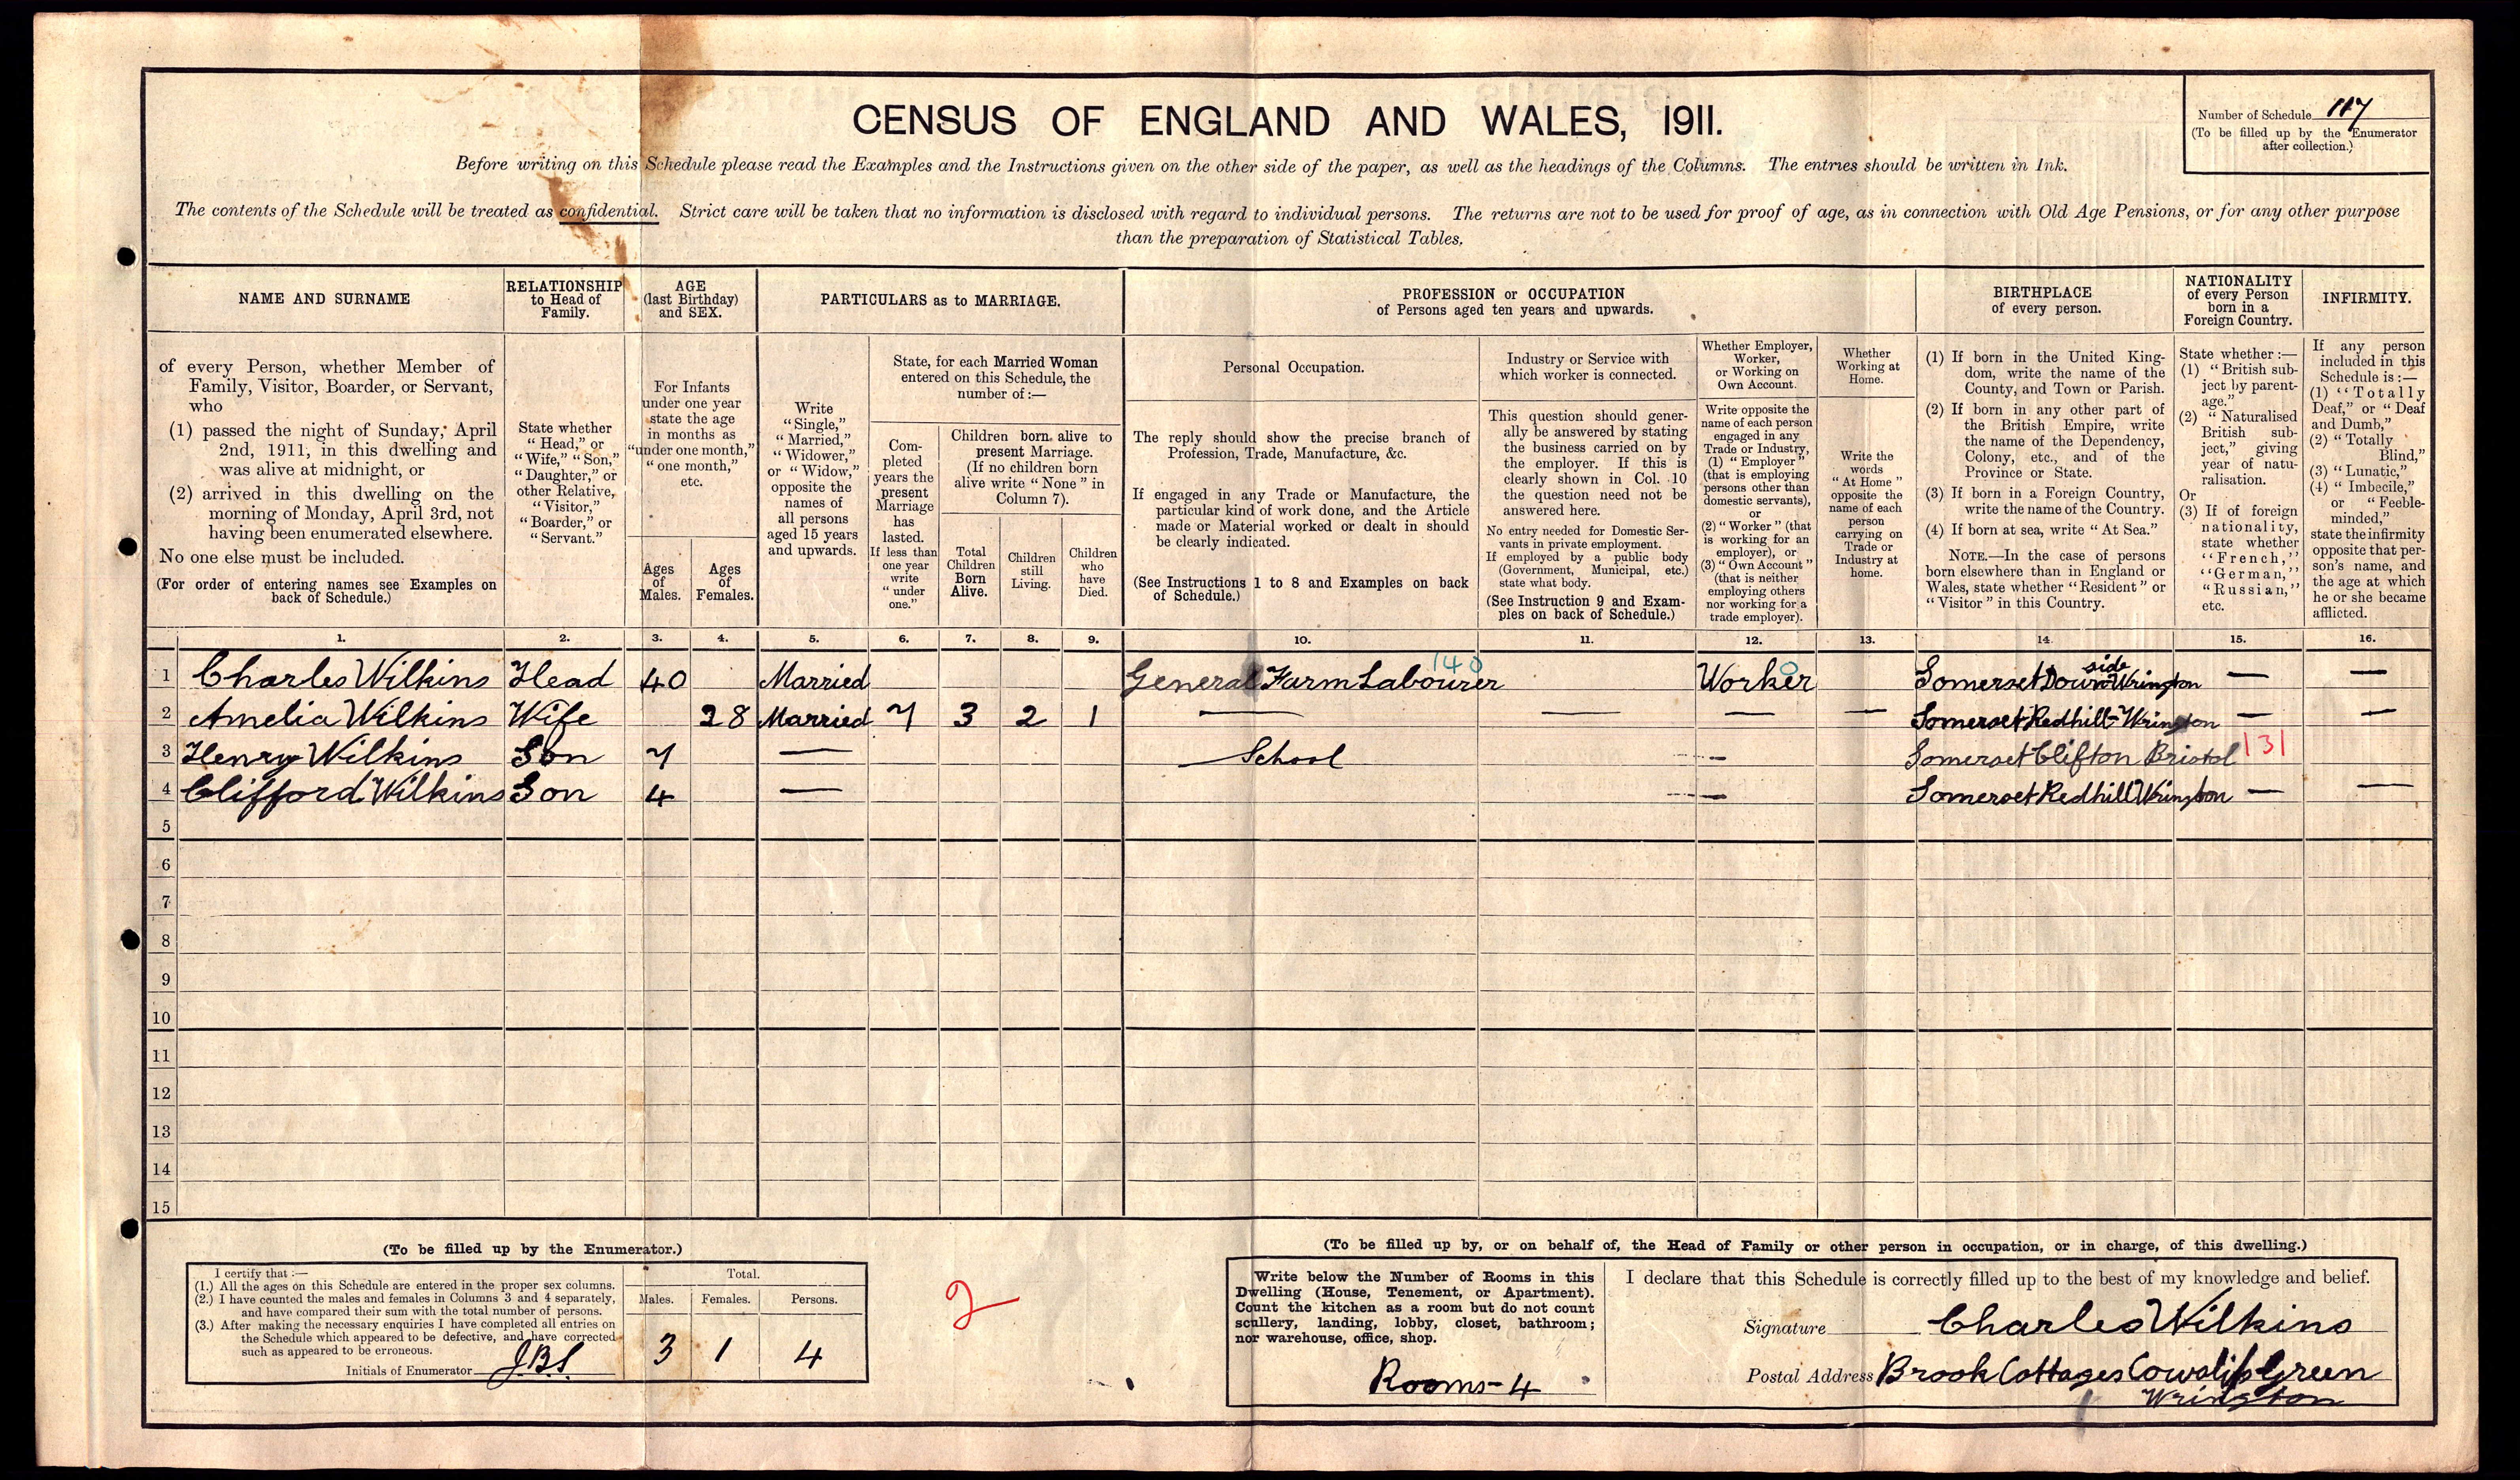 CENSUS OF ENGLAND AND WALES, 1911.
Number of Schedule 117
(To be filled up by the Enumerator
after collection.)
Before writing on this Schedule please read the Examples and the Instructions given on the other side of the paper, as well as the headings of the Columns. The entries should be written in Ink.
The contents of the Schedule will be treated as confidential. Strict care will be taken that no information is disclosed with regard to individual persons. The returns are not to be used for proof of age, as in connection with Old Age Pensions, or for any other purpose
than the preparation of Statistical Tables.
NAME AND SURNAME
of every Person, whether Member of
Family, Visitor, Boarder, or Servant,
who
(1) passed the night of Sunday, April
2nd, 1911, in this dwelling and
was alive at midnight, or
(2) arrived in this dwelling on the
morning of Monday, April 3rd, not
having been enumerated elsewhere.
No one else must be included.
(For order of entering names see Examples on
back of Schedule.)
RELATIONSHIP
to Head of
Family.
State whether
"Head," or
"Wife," "Son,"
"Daughter," or
other Relative,
"Visitor,"
"Boarder," or
"Servant."
AGE
(last Birthday)
and SEX.
For Infants
under one year
state the age
in months as
"under one month,"
"one month,"
etc.
Ages
of
Males.
Ages
of
Females.
PARTICULARS as to MARRIAGE.
Write
"Single,"
"Married,"
"Widower,"
or "Widow,"
opposite the
names of
all persons
aged 15 years
and upwards.
State, for each Married Woman
entered on this Schedule, the
number of:—
Com-
pleted
years the
present
Marriage
has
lasted.
If less than
one year
write
"under
one."
Children born alive to
present Marriage.
(If no children born
alive write "None" in
Column 7).
Total
Children
Born
Alive.
Children
still
Living.
Children
who
have
Died.
PROFESSION or OCCUPATION
of Persons aged ten years and upwards.
Personal Occupation.
The reply should show the precise branch of
Profession, Trade, Manufacture, &c.
If engaged in any Trade or Manufacture, the
particular kind of work done, and the Article
made or Material worked or dealt in should
be clearly indicated.
(See Instructions 1 to 8 and Examples on back
of Schedule.)
Industry or Service with
which worker is connected.
This question should gener-
ally be answered by stating
the business carried on by
the employer. If this is
clearly shown in Col. 10
the question need not be
answered here.
No entry needed for Domestic Ser-
vants in private employment.
If employed by a public body
(Government, Municipal, etc.)
state what body.
(See Instruction 9 and Exam-
ples on back of Schedule.)
Whether Employer,
Worker,
or Working on
Own Account.
Write opposite the
name of each person
engaged in any
Trade or Industry,
(1) "Employer"
(that is employing
persons other than
domestic servants),
or
(2) "Worker" (that
is working for an
employer), or
(3) "Own Account"
(that is neither
employing others
nor working for a
trade employer).
Whether
Working at
Home.
Write the
words
"At Home"
opposite the
name of each
person
carrying on
Trade or
Industry at
home.
BIRTHPLACE
of every person.
(1) If born in the United King-
dom, write the name of the
County, and Town or Parish.
(2) If born in any other part of
the British Empire, write
the name of the Dependency,
Colony, etc., and of the
Province or State.
(3) If born in a Foreign Country,
write the name of the Country.
(4) If born at sea, write "At Sea."
NOTE.—In the case of persons
born elsewhere than in England or
Wales, state whether "Resident" or
"Visitor" in this Country.
NATIONALITY
of every Person
born in a
Foreign Country.
State whether:—
(1) "British sub-
ject by parent-
age."
(2) "Naturalised
British sub-
ject," giving
year of natu-
ralisation.
Or
(3) If of foreign
nationality,
state whether
"French,"
"German,"
"Russian,"
etc.
INFIRMITY.
If any person
included in this
Schedule is:—
(1) "Totally
Deaf," or "Deaf
and Dumb,"
(2) "Totally
Blind,"
(3) "Lunatic,"
(4) "Imbecile,"
or "Feeble-
minded,"
state the infirmity
opposite that per-
son's name, and
the age at which
he or she became
afflicted.
1. 2. 3. 4. 5. 6. 7. 8. 9. 10. 11. 12. 13. 14. 15. 16.
140 0 side
1 Charles Wilkins Head 40 Married General Farm Labourer Worker Somerset Down Wrington — —
2 Amelia Wilkins Wife 28 Married 7 3 2 1 — — — — Somerset Redhill-Wrington — —
3 Henry Wilkins Son 7 — School — Somerset Clifton Bristol 131
4 Clifford Wilkins Son 4 — — Somerset Redhill Wrington — —
5
6
7
8
9
10
11
12
13
14
15
(To be filled up by the Enumerator.)
I certify that:—
(1.) All the ages on this Schedule are entered in the proper sex columns.
(2.) I have counted the males and females in Columns 3 and 4 separately,
and have compared their sum with the total number of persons.
(3.) After making the necessary enquiries I have completed all entries on
the Schedule which appeared to be defective, and have corrected
such as appeared to be erroneous.
Initials of Enumerator
Total.
Males. Females. Persons.
3 1 4
2
(To be filled up by, or on behalf of, the Head of Family or other person in occupation, or in charge, of this dwelling.)
Write below the Number of Rooms in this
Dwelling (House, Tenement, or Apartment).
Count the kitchen as a room but do not count
scullery, landing, lobby, closet, bathroom;
nor warehouse, office, shop.
Rooms-4
I declare that this Schedule is correctly filled up to the best of my knowledge and belief.
Signature Charles Wilkins
Postal Address Brook Cottages Cowslip Green
Wrington